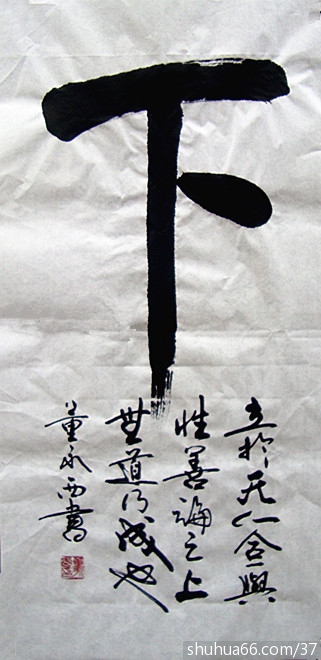 下
立於天人合與
性善論之上
道乃成也
董永書
shuhua66.com/37